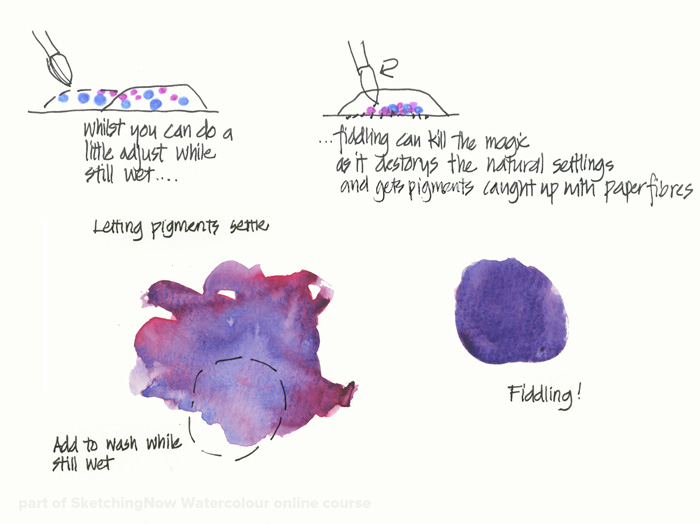 whilst you can do a
little adjust while
still wet....
...fiddling can kill the magic
as it destorys the natural settlings
and gets pigments caught up with paper fibres
Letting pigments settle
Fiddling!
Add to wash while
still wet
part of SketchingNow Watercolour online course